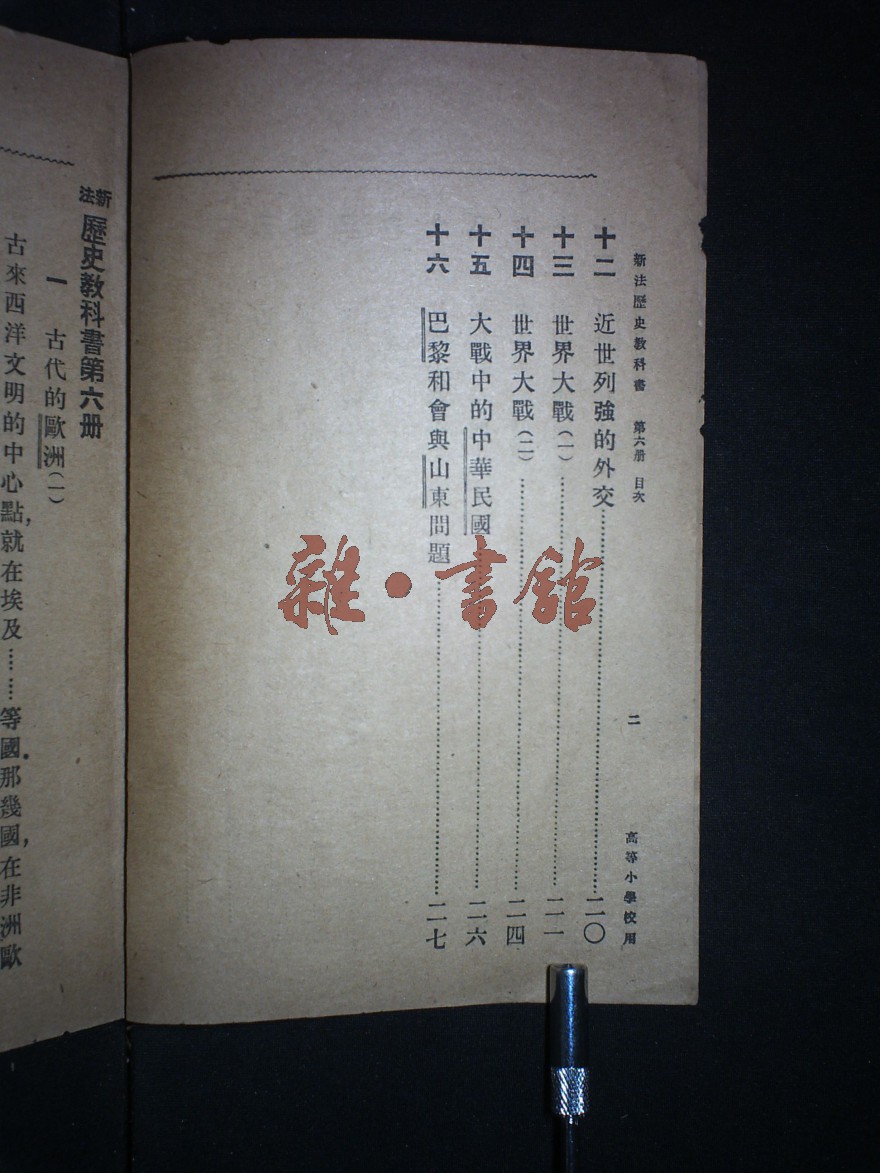 新法歷史教科書 第六册 目次 二 高等小學校用
十二 近世列強的外交……二〇
十三 世界大戰(一)……二一
十四 世界大戰(二)……二四
十五 大戰中的中華民國……二六
十六 巴黎和會與山東問題……二七
新法歷史教科書第六册
一 古代的歐洲(一)
古來西洋文明的中心點，就在埃及……等國。那幾國，在非洲歐
雜·書館